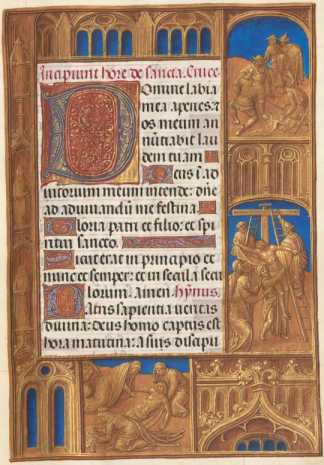 Incipiunt hore de sancta Cruce
Domine labia
mea aperies: ⁊
os meum an
nūtiabit lau
dem tuam
Deus ī ad
iutorium meum intende: dn̄e
ad adiuuandū me festina
Gloria patri et filio: et spi
ritui sancto.
Sicut erat in principio et
nunc et semper: et in secula secu
lorum. amen. hÿmnus.
Patris sapientia ueritas
diuina: deus homo captus est
hora matutina: a suis discipu